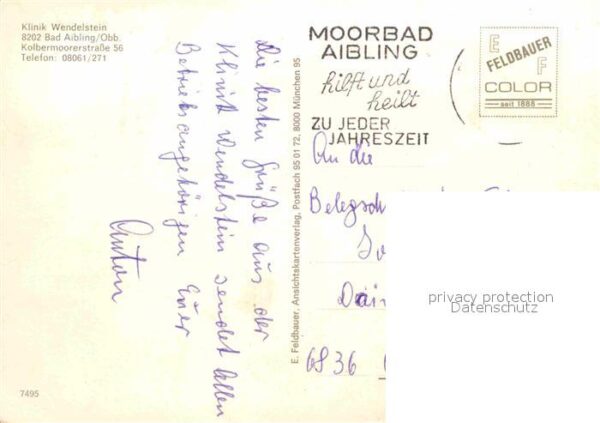 Klinik Wendelstein
8202 Bad Aibling/Obb.
Kolbermoorerstraße 56
Telefon: 08061/271
Die besten Grüße aus der
Klinik Wendelstein sendet allen
Betriebsangehörigen Euer
Anton
7495
E. Feldbauer, Ansichtskartenverlag, Postfach 95 01 72, 8000 München 95
MOORBAD
AIBLING
hilft und
heilt
ZU JEDER
JAHRESZEIT
E
FELDBAUER
F
COLOR
seit 1888
An die
Belegsch
6836
privacy protection
Datenschutz